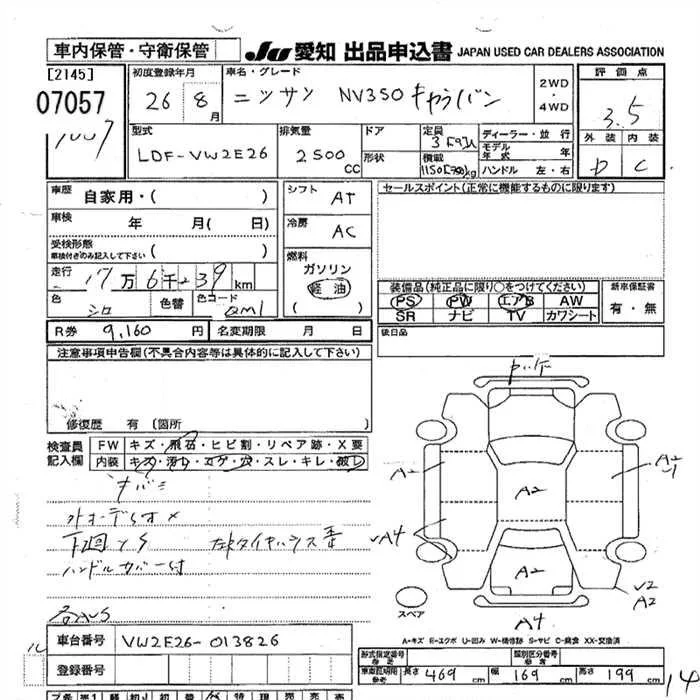 車内保管・守衛保管
JU 愛知 出品申込書 JAPAN USED CAR DEALERS ASSOCIATION
[2145]
07057
初度登録年月
26 8月
車名・グレード
ニッサン NV350 キャラバン
2WD
・
4WD
評価点
3.5
型式
LDF-VW2E26
排気量
2500 CC
ドア
形状
定員
積載
ディーラー・並行
モデル年式 年
ハンドル 左・右
外装 内装
D C
車歴
自家用・( )
車検
年 月( 日)
受検形態
車検付きのみ記入して下さい ( )
走行
17万6千239km
色
シロ
色替
色コード
QM1
シフト
AT
冷房
AC
燃料
ガソリン
軽油
セールスポイント(正常に機能するものに限ります)
装備品(純正品に限り○をつけてください)
PS PW エアB AW
SR ナビ TV カワシート
新車保証書
有・無
R券 9,160円
名変期限 月 日
後日品
注意事項申告欄(不具合内容等は具体的に記入して下さい)
修復歴 有 (箇所
検査員記入欄
FW キズ・飛石・ヒビ割・リペア跡・X要
内装 キズ・汚れ・コゲ・穴・スレ・キレ・破レ
下回りS
ハンドルカバー付
A2
A2
A2
A2
A4
スペア
A4
A2
A-キズ E-エクボ U-凹み W-補修跡 S-サビ C-腐食 XX-交換済
車台番号
VW2E26-013826
登録番号
型式指定番号
類別区分番号
車車証明用参考 長さ 469cm 幅 169cm 高さ 199cm
14